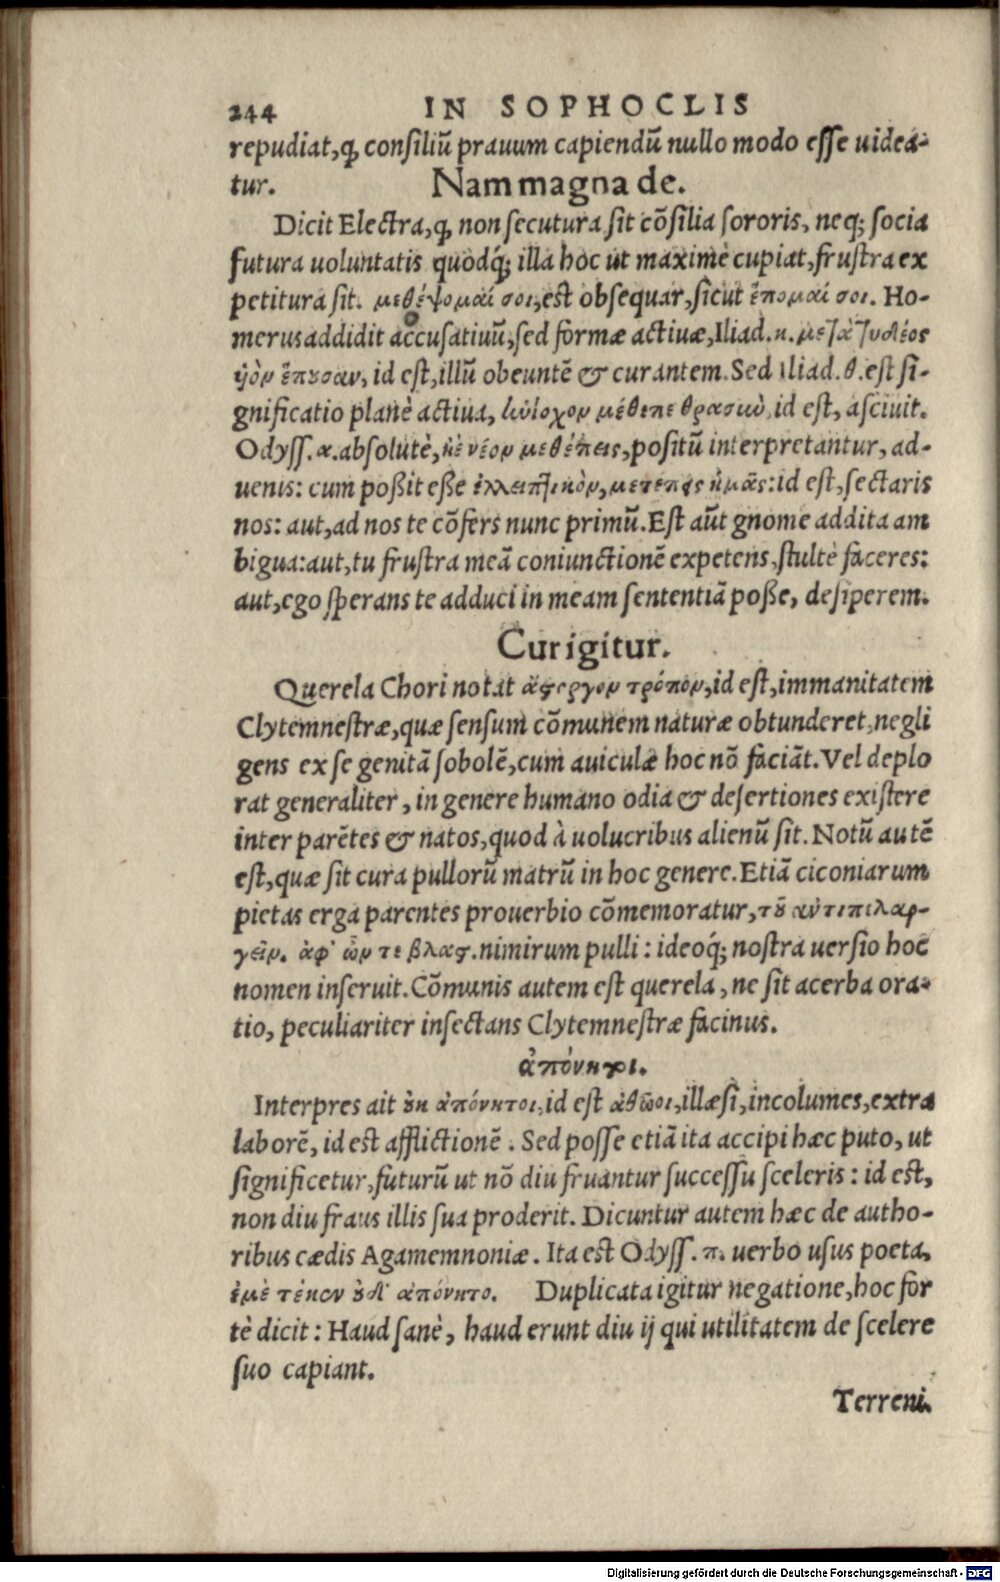 244 IN SOPHOCLIS
repudiat, ꝙ consiliũ prauum capiendũ nullo modo esse uidea-
tur. Nam magna de.
Dicit Electra, ꝙ non secutura sit cõsilia sororis, neq; socia
futura uoluntatis quodq́; illa hoc ut maximè cupiat, frustra ex
petitura sit. μεθέψομαί σοι, est obsequar, sicut ἕπομαί σοι. Ho-
merus addidit accusatiuũ, sed formæ actiuæ, Iliad. κ. μετὰ Τυδέος
υἱὸν ἕπουσαν, id est, illũ obeuntẽ & curantem. Sed Iliad. θ. est si-
gnificatio planè actiua, ἡνίοχον μέθεπε θρασιὺ, id est, asciuit.
Odyss. α. absolutè, ἠὲ νέον μεθέπεις, positũ interpretantur, ad-
uenis: cum poßit eße ἐλλειπτικὸν, μετέπῃς ἡμᾶς: id est, sectaris
nos: aut, ad nos te cõfers nunc primũ. Est aũt gnome addita am
bigua: aut, tu frustra meã coniunctionẽ expetens, stultè faceres:
aut, ego sperans te adduci in meam sententiã poße, desiperem.
Cur igitur.
Querela Chori notat ἄστεργον τρόπον, id est, immanitatem
Clytemnestræ, quæ sensum cõmunem naturæ obtunderet, negli
gens ex se genitã sobolẽ, cum auiculæ hoc nõ faciãt. Vel deplo
rat generaliter, in genere humano odia & desertiones existere
inter parẽtes & natos, quod à uolucribus alienũ sit. Notũ autẽ
est, quæ sit cura pullorũ matrũ in hoc genere. Etiã ciconiarum
pietas erga parentes prouerbio cõmemoratur, τοῦ ἀντιπελαρ-
γεῖν. ἀφ' ὧν τε βλαστ. nimirum pulli: ideoq́; nostra uersio hoc
nomen inseruit. Cõmunis autem est querela, ne sit acerba ora-
tio, peculiariter insectans Clytemnestræ facinus.
ἀπόνητοι.
Interpres ait οὐκ ἀπόνητοι, id est ἀθῶοι, illæsi, incolumes, extra
laborẽ, id est afflictionẽ. Sed posse etiã ita accipi hæc puto, ut
significetur, futurũ ut nõ diu fruantur successu sceleris: id est,
non diu fraus illis sua proderit. Dicuntur autem hæc de autho-
ribus cædis Agamemnoniæ. Ita est Odyss. π. uerbo usus poeta,
ἐμὲ τέκεν οὐδ' ἀπόνητο. Duplicata igitur negatione, hoc for
tè dicit: Haud sanè, haud erunt diu ij qui utilitatem de scelere
suo capiant.
Terreni.
Digitalisierung gefördert durch die Deutsche Forschungsgemeinschaft - DFG